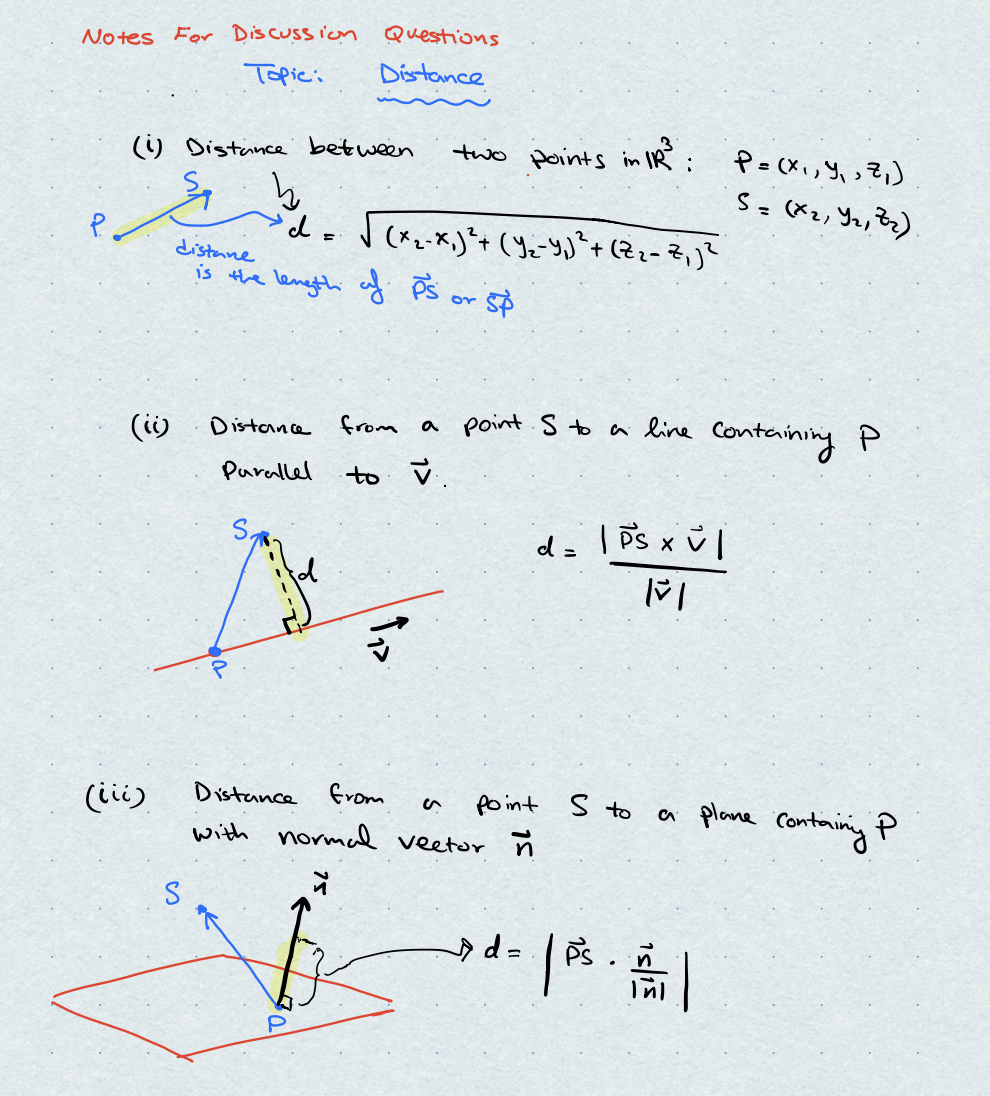 Notes For Discussion Questions
Topic: Distance
(i) Distance between two points in ℝ³: P = (x₁, y₁, z₁)
S = (x₂, y₂, z₂)
S
P
d = √((x₂-x₁)² + (y₂-y₁)² + (z₂-z₁)²)
distance
is the length of P⃗S or S⃗P
(ii) Distance from a point S to a line containing P
Parallel to v⃗.
S
d
d = |P⃗S × v⃗| / |v⃗|
v⃗
P
(iii) Distance from a point S to a plane containig P
with normal vector n⃗
S
n⃗
d = |P⃗S · n⃗/|n⃗||
P